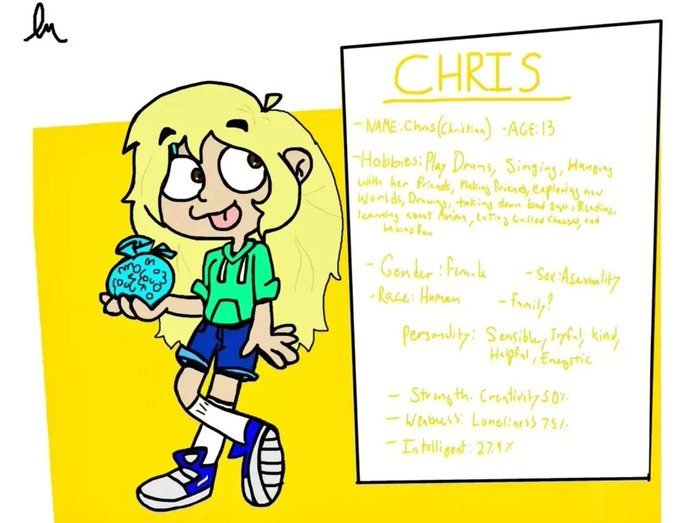 CHRIS
- NAME: Chris (Christina) - AGE: 13
- Hobbies: Play Drums, Singing, Hanging
with her friends, Making Friends, exploring new
Worlds, Drawing, taking down bad guys, Reading,
learning about Anima, Eating Grilled Cheeses, and
having fun
- Gender: Female - Sex: Asexuality
- Race: Human - Family?
Personality: Sensible, Joyful, kind,
Helpful, Energetic
- Strength: Creativity 50%
- Weakness: Loneliness 75%
- Intelligent: 27.9%